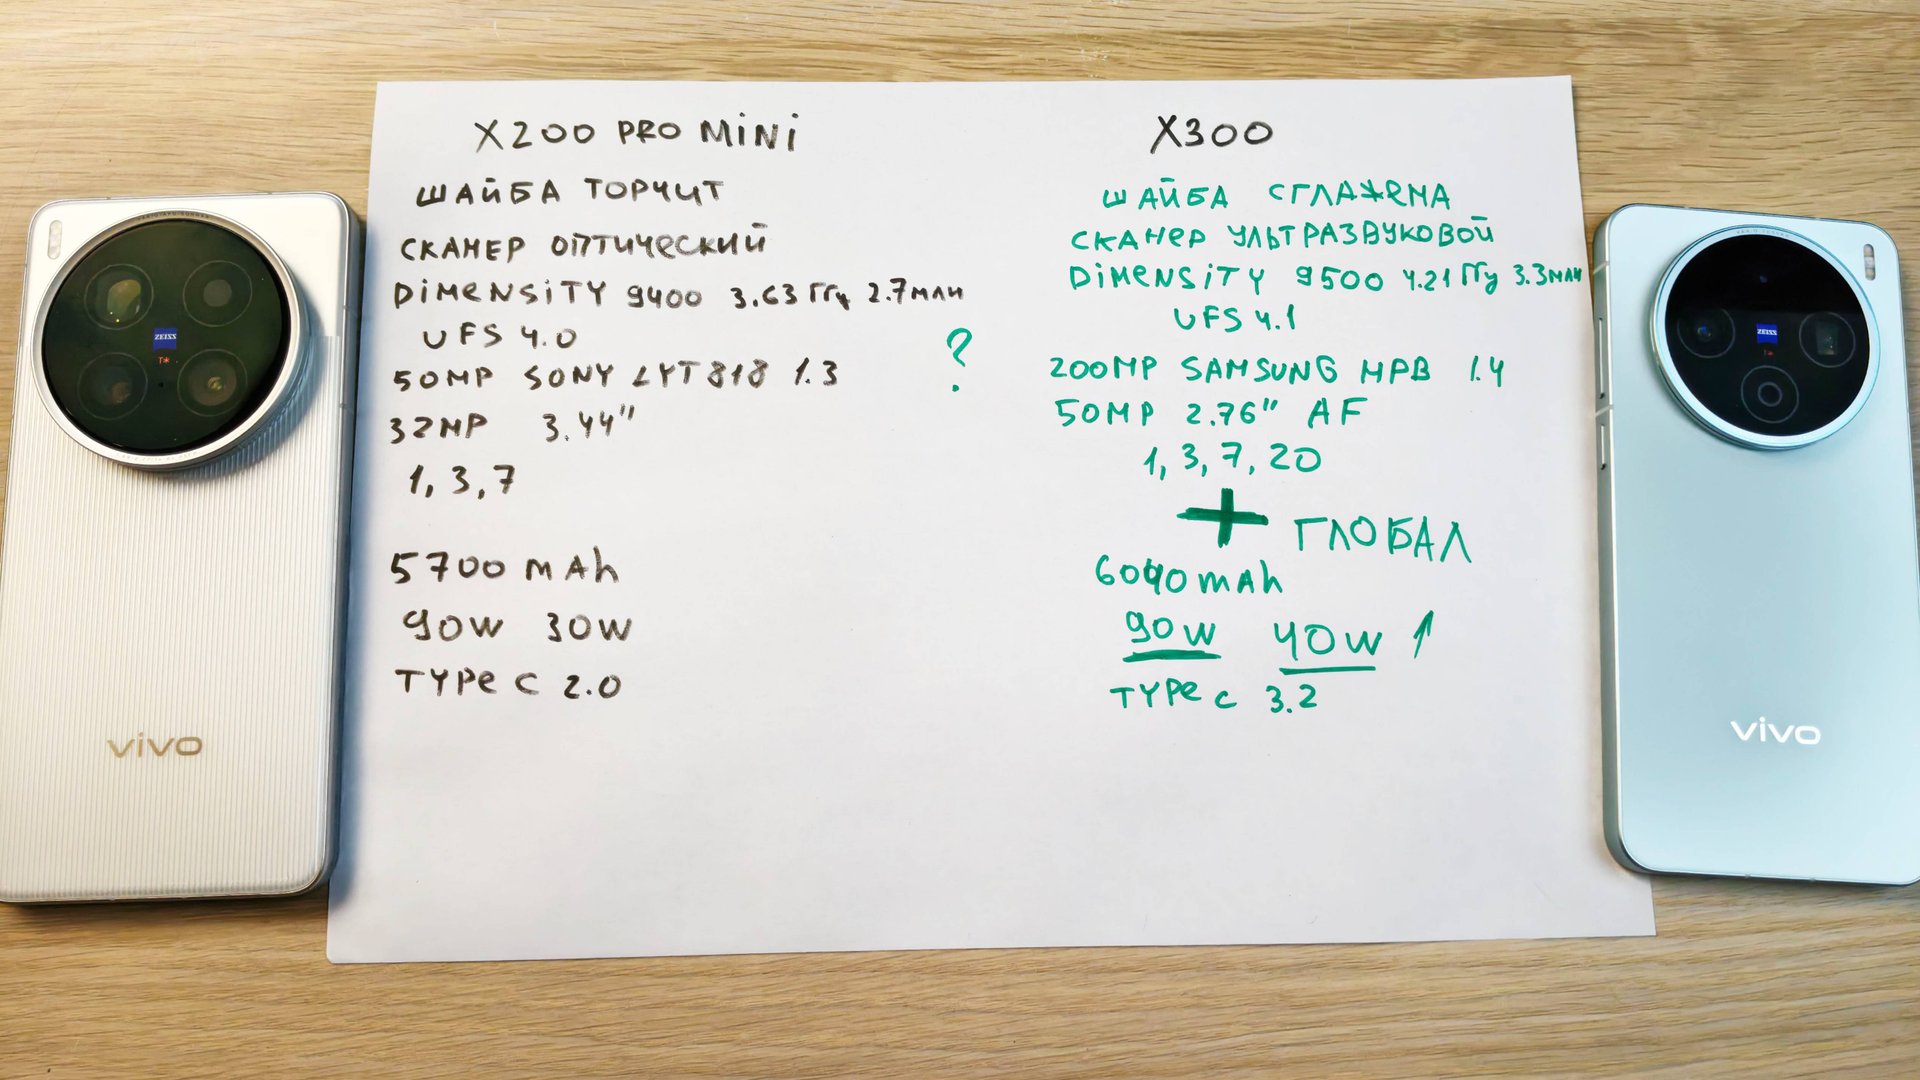 X200 PRO MINI
ШАЙБА ТОРЧИТ
СКАНЕР ОПТИЧЕСКИЙ
DIMENSITY 9400 3.63 ГГц 2.7 МЛН
UFS 4.0
50MP SONY LYT818 1.3
32MP 3.44"
1, 3, 7
5700 mAh
90W 30W
TYPE C 2.0
?
X300
ШАЙБА СГЛАЖЕНА
СКАНЕР УЛЬТРАЗВУКОВОЙ
DIMENSITY 9500 4.21 ГГц 3.3 МЛН
UFS 4.1
200MP SAMSUNG HPB 1.4
50MP 2.76" AF
1, 3, 7, 20
+ ГЛОБАЛ
6040 mAh
90W 40W ↑
TYPE C 3.2
ZEISS
T*
vivo
ZEISS
T*
vivo